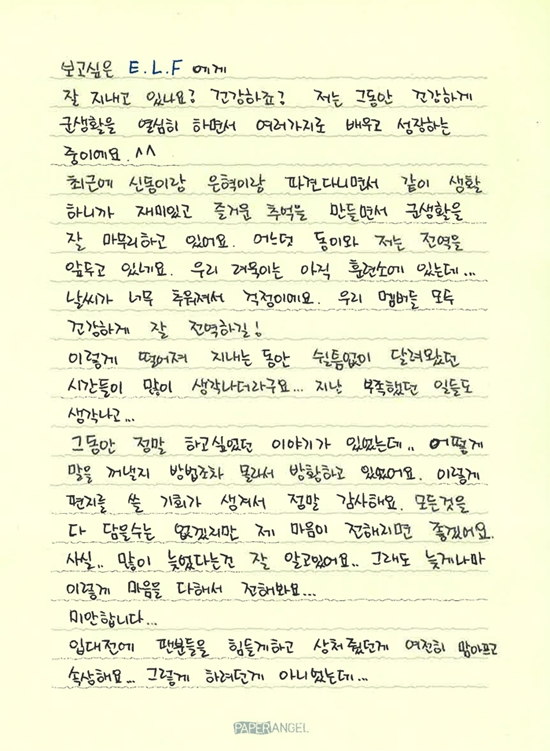 보고싶은 E.L.F 에게
잘 지내고 있나요? 건강하죠? 저는 그동안 건강하게
군생활을 열심히 하면서 여러가지로 배우고 성장하는
중이에요. ^^
최근에 신동이랑 은혁이랑 파견다니면서 같이 생활
하니까 재미있고 즐거운 추억을 만들면서 군생활을
잘 마무리하고 있어요. 어느덧 동이와 저는 전역을
앞두고 있네요. 우리 려욱이는 아직 훈련소에 있는데...
날씨가 너무 추워져서 걱정이에요. 우리 멤버들 모두
건강하게 잘 전역하길!
이렇게 떨어져 지내는 동안 쉴틈없이 달려왔던
시간들이 많이 생각나더라구요... 지난 부족했던 일들도
생각나고...
그동안 정말 하고싶었던 이야기가 있었는데.. 어떻게
말을 꺼낼지 방법조차 몰라서 방황하고 있었어요. 이렇게
편지를 쓸 기회가 생겨서 정말 감사해요. 모든것을
다 담을수는 없겠지만 제 마음이 전해지면 좋겠어요.
사실.. 많이 늦었다는건 잘 알고있어요.. 그래도 늦게나마
이렇게 마음을 다해서 전해봐요...
미안합니다...
입대전에 팬분들을 힘들게하고 상처줬던게 여전히 맘아프고
속상해요... 그렇게 하려던게 아니었는데...
PAPER ANGEL